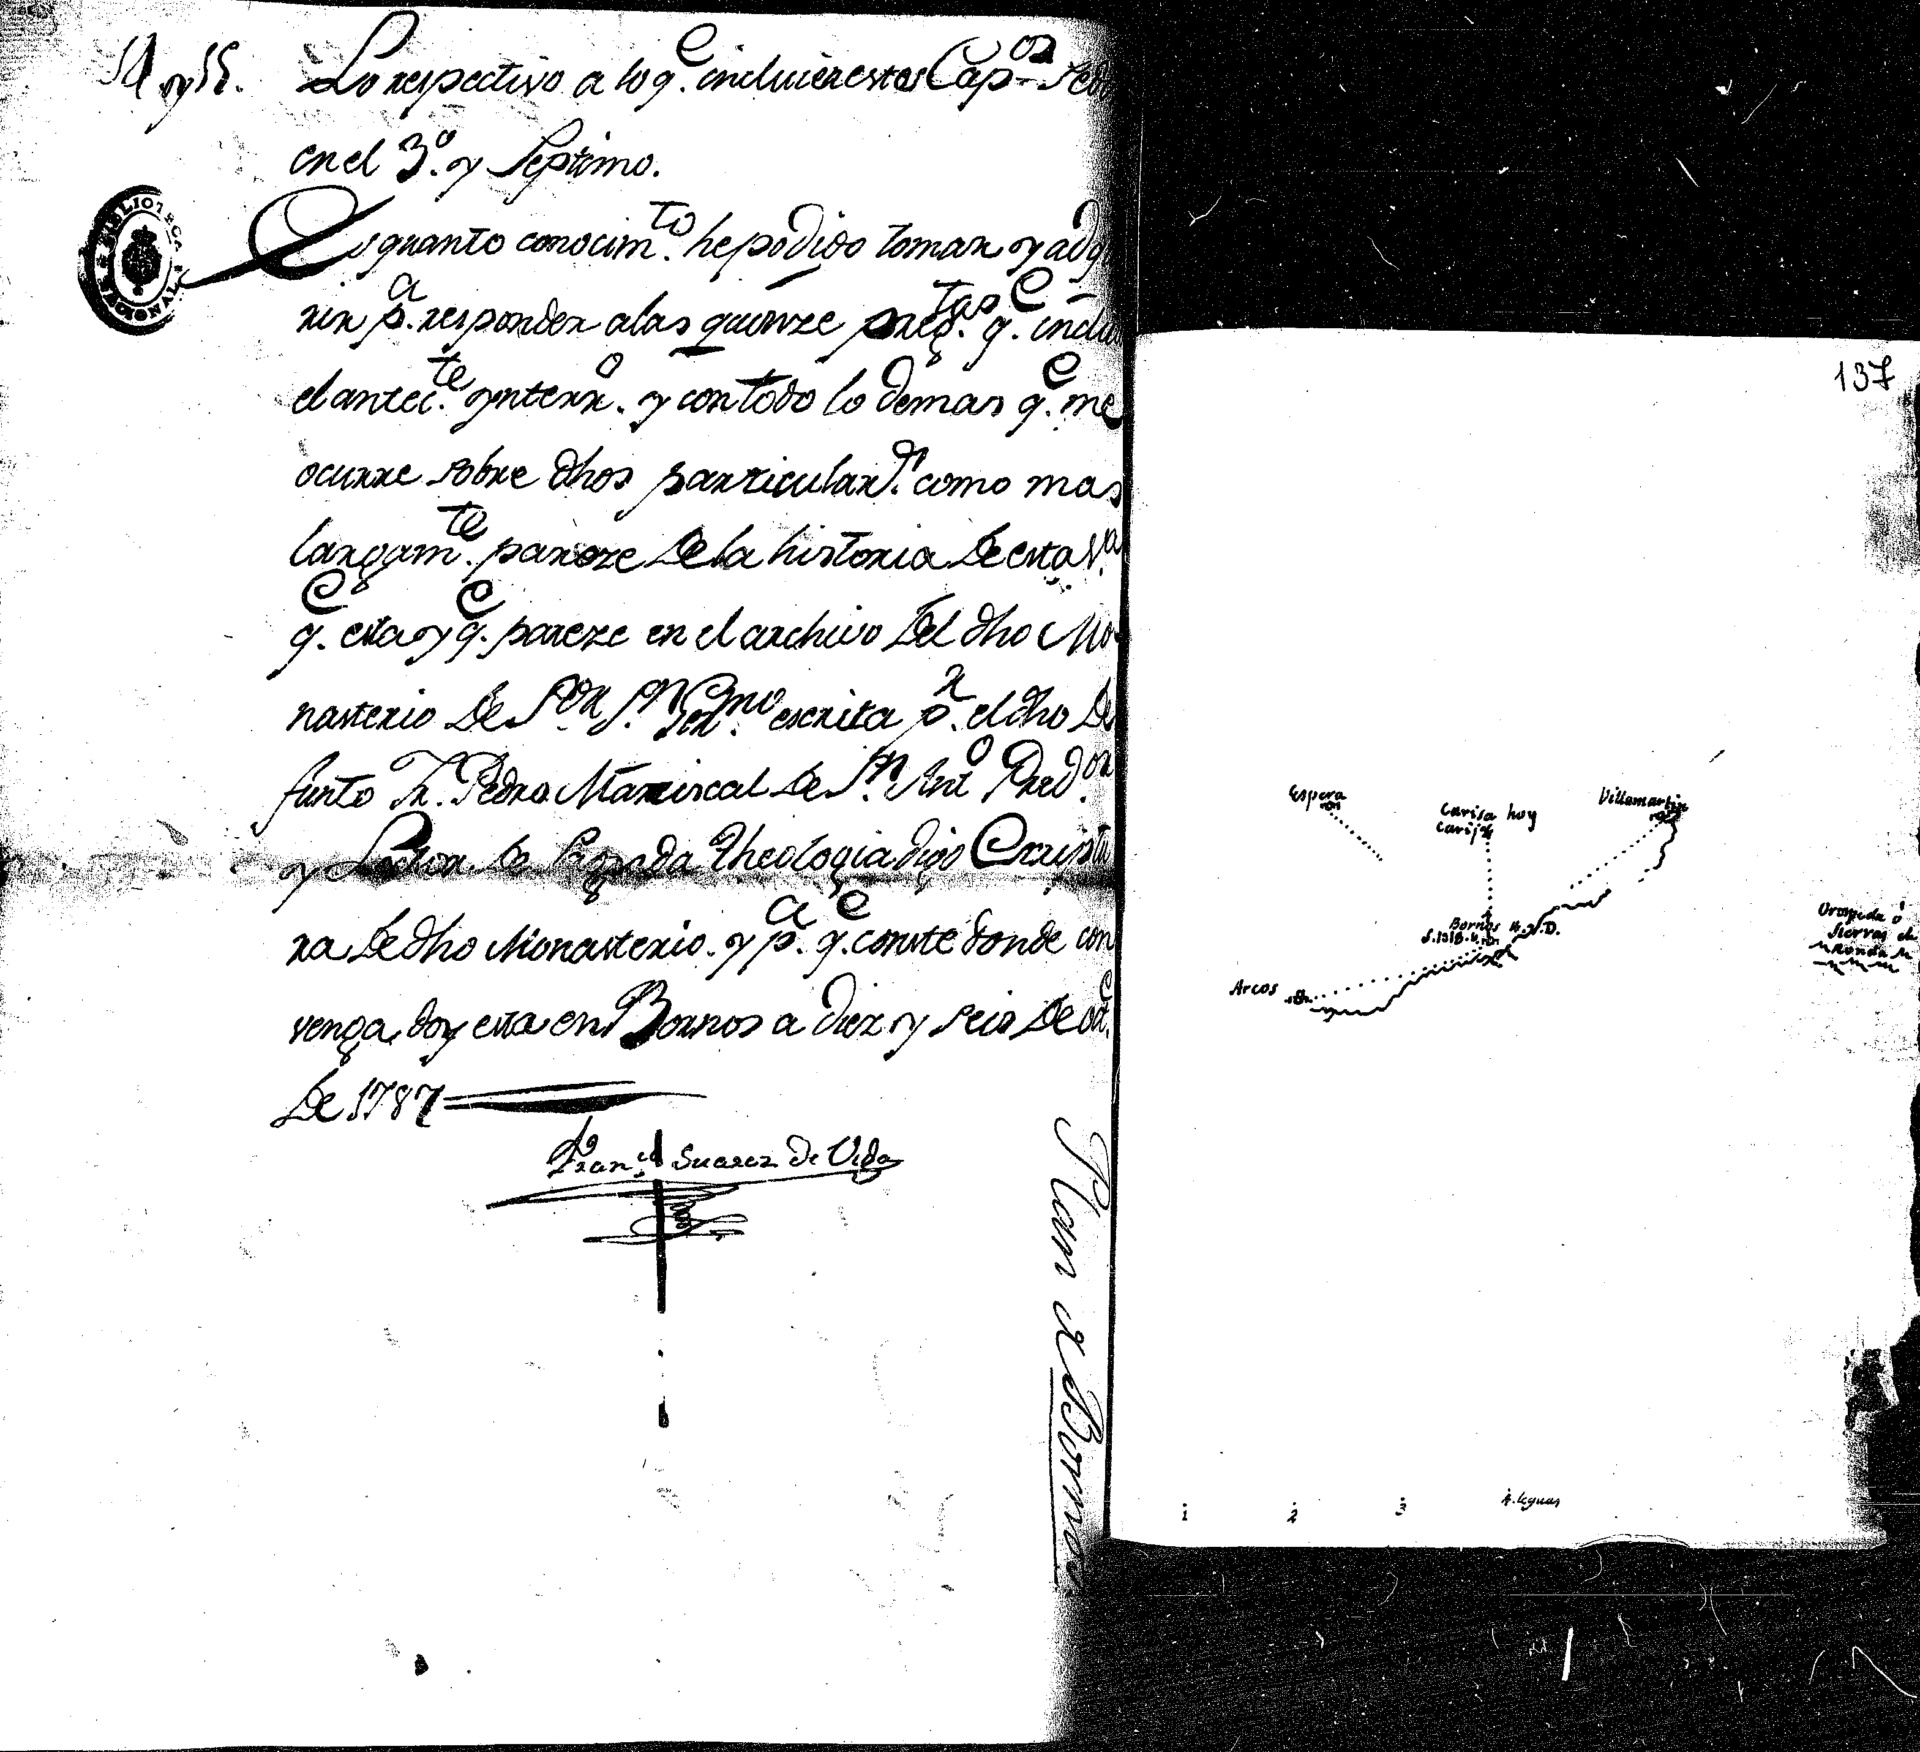 14 y 15. Lo respectivo a lo q.e incluien estos Cap.os
en el 3.o y Septimo.
Es quanto conocim.to he podido tomar y adq
rir p.a responder a las quinze preg.tas q.e inclu
el antec.te ynterr.o y con todo lo demas q.e me
ocurre sobre dhos particular.s como mas
largam.te pareze de la historia de esta V.a
q.e esta y q.e pareze en el archivo del dho Mo-
nasterio de S.or S.n Ger.mo escrita p.r el dho De
funto Fr. Pedro Mariscal de S.n Ant.o Pred.or
y Lector de Sagrada Theologia digo Escritu
ra de dho Monasterio. y p.a q.e conste donde con
venga, doy esta en Bornos a diez y seis de oct.e
de 1787
Fran.co Suarez de Vida
BIBLIOTECA NACIONAL
Plan de Bornos
137
Espera
Carisa hoy
Carija
Villamartin
Bornos
Arcos
Orospeda ó
Sierras de
Ronda
1 2 3 4. leguas